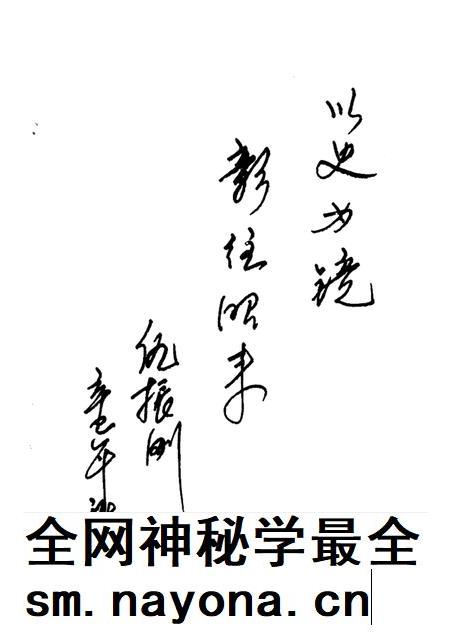 以史为镜
彰往昭来
振
辛巳年
全网神秘学最全
sm.nayona.cn